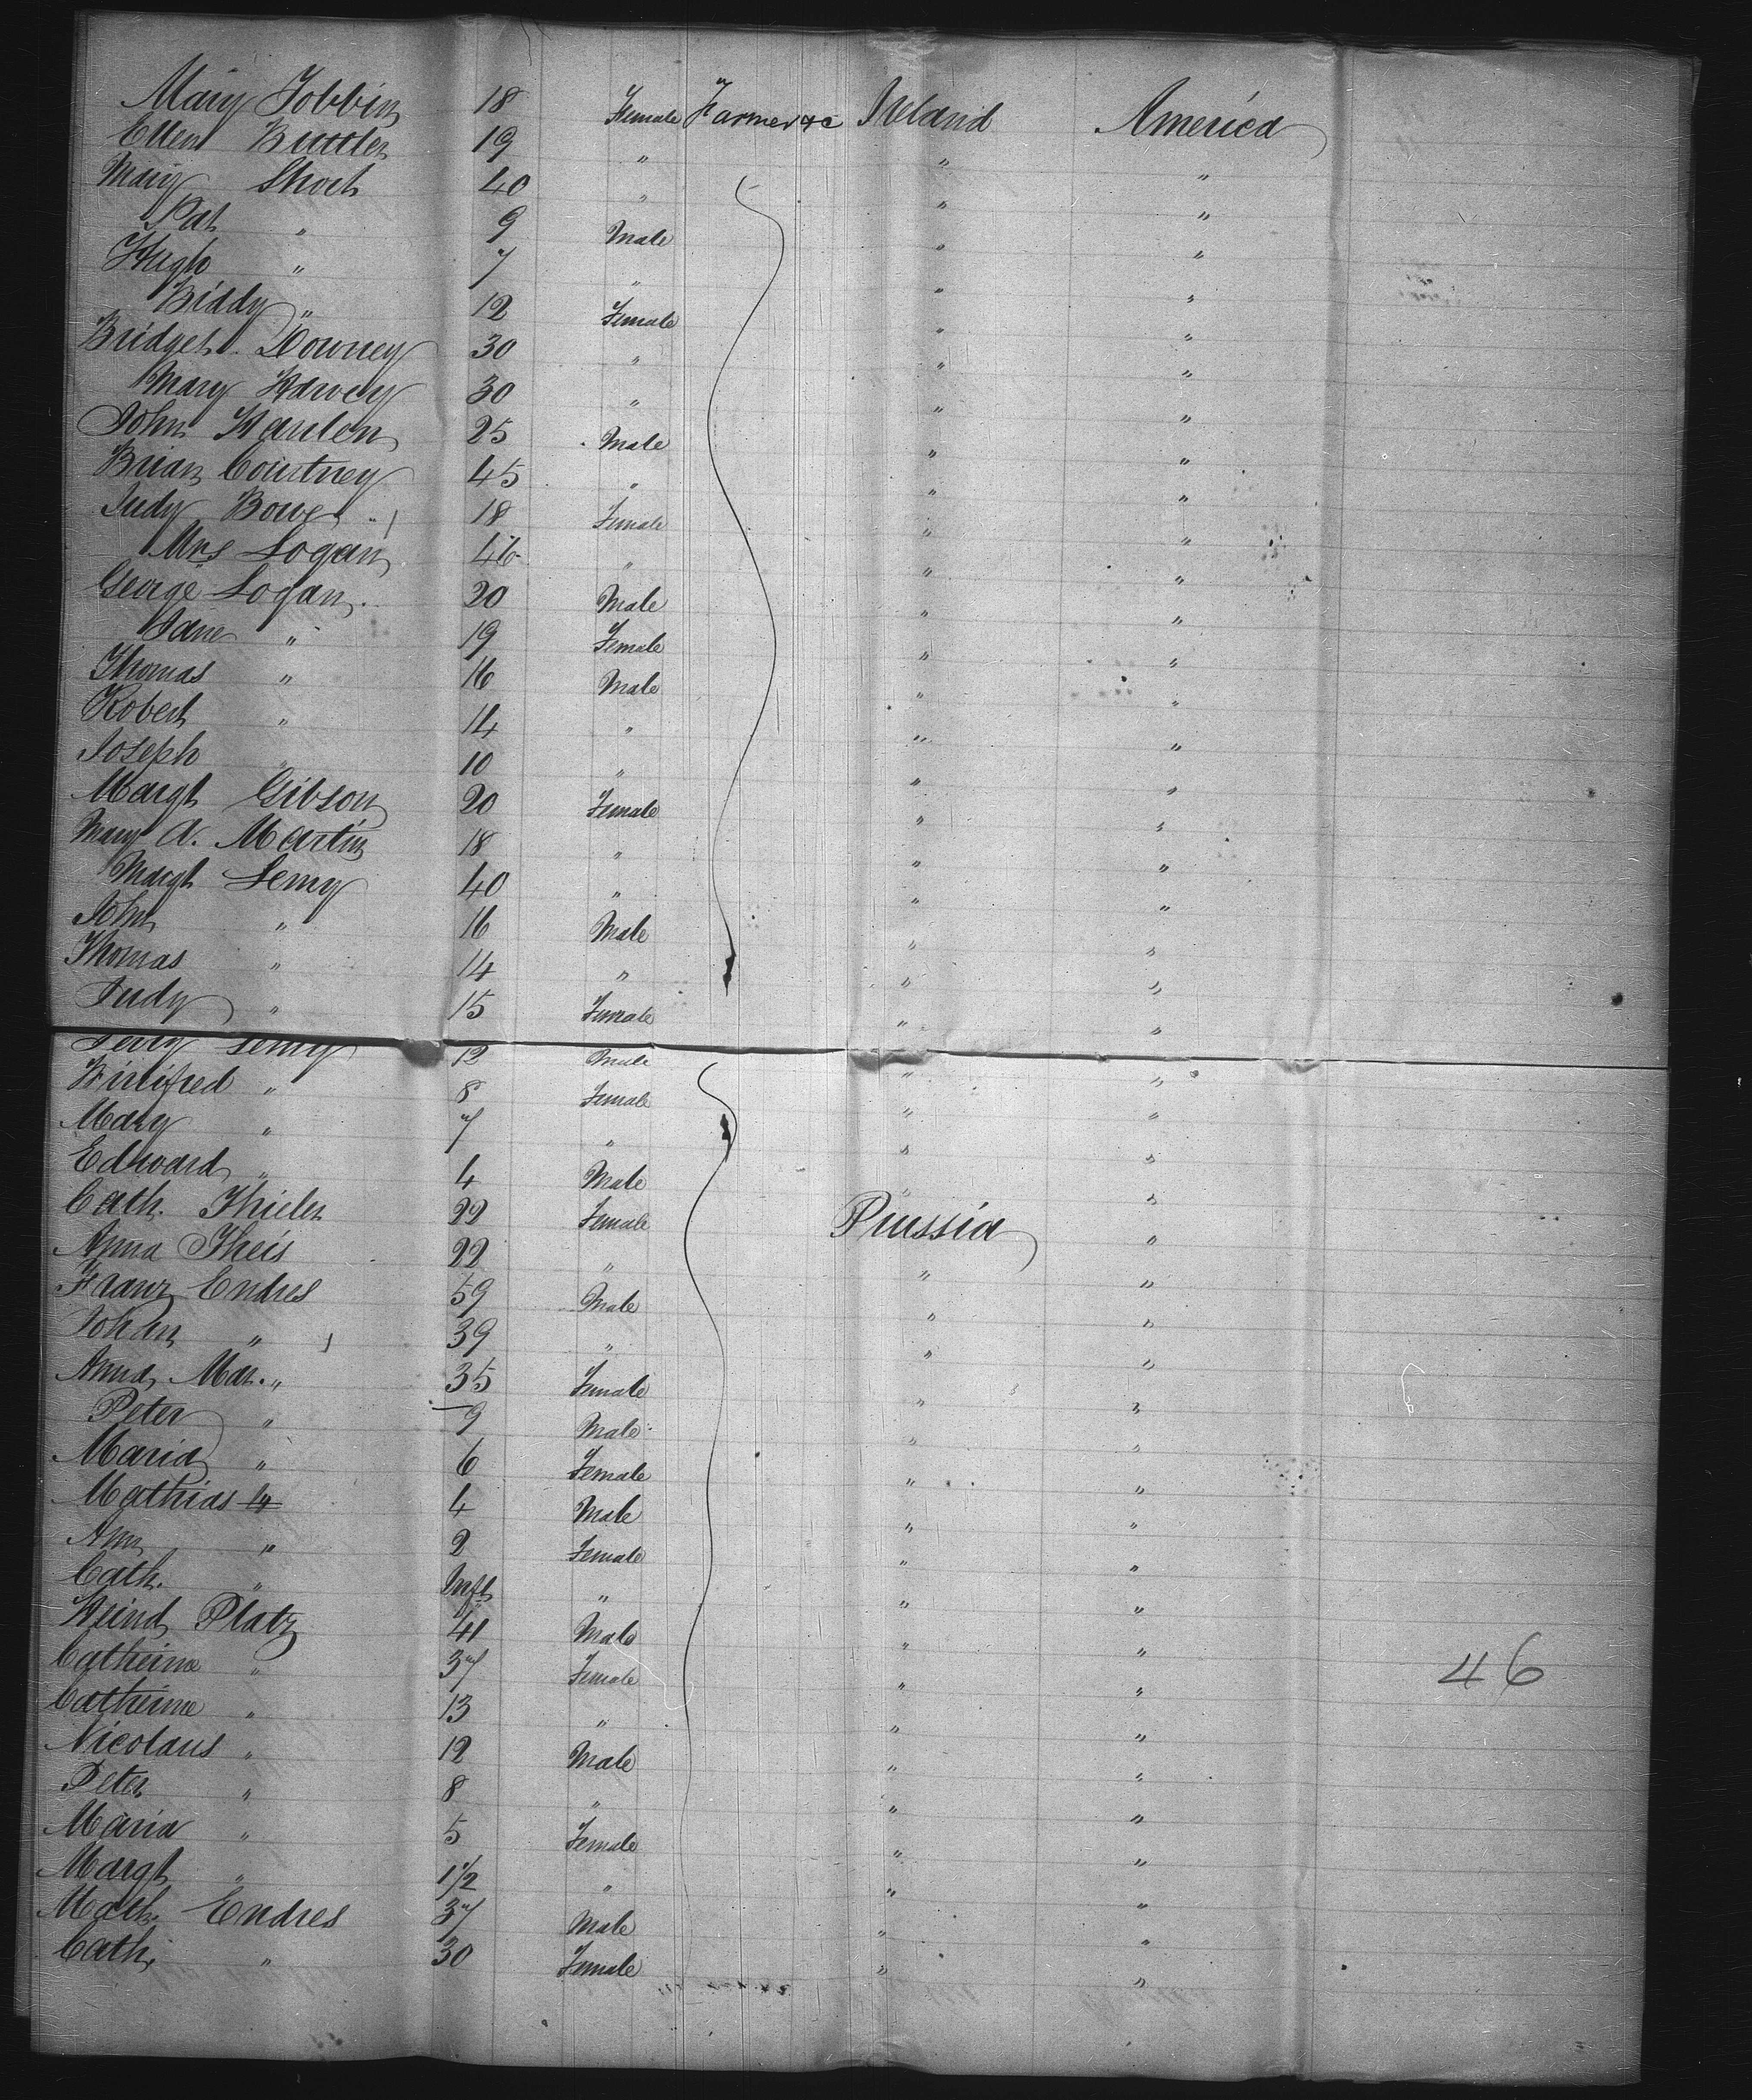 Mary Tobbin 18 Female Farmer &c Ireland America
Ellen Buttler 19 " " "
Mary Short 40 " " "
Pat " 9 Male " "
Hugh " 7 " " "
Biddy " 12 Female " "
Bridget Downey 30 " " "
Mary Harvey 30 " " "
John Hanlen 25 Male " "
Brian Courtney 45 " " "
Judy Bowes 18 Female " "
Mrs Logan 46 " " "
George Logan 20 Male " "
Jane " 19 Female " "
Thomas " 16 Male " "
Robert " 14 " " "
Joseph " 10 " " "
Margt Gibson 20 Female " "
Mary A. Martin 18 " " "
Margt Lemy 40 " " "
John " 16 Male " "
Thomas " 14 " " "
Judy " 15 Female " "
Lemy 12 Male " "
Winifred " 8 Female " "
Mary " 7 " " "
Edward " 4 Male " "
Cath. Thielen 22 Female Prussia "
Anna Theis 22 " " "
Franz Endres 59 Male " "
Johan " 39 " " "
Anna Mar. " 35 Female " "
Peter " 9 Male " "
Maria " 6 Female " "
Mathias " 4 Male " "
Ann " 2 Female " "
Cath. " Inft " " "
Heind Platz 41 Male " "
Catherine " 37 Female " " 46
Catherine " 13 " " "
Nicolaus " 12 Male " "
Peter " 8 " " "
Maria " 5 Female " "
Margt " 1 1/2 " " "
Math. Endres 37 Male " "
Cath. " 30 Female " "